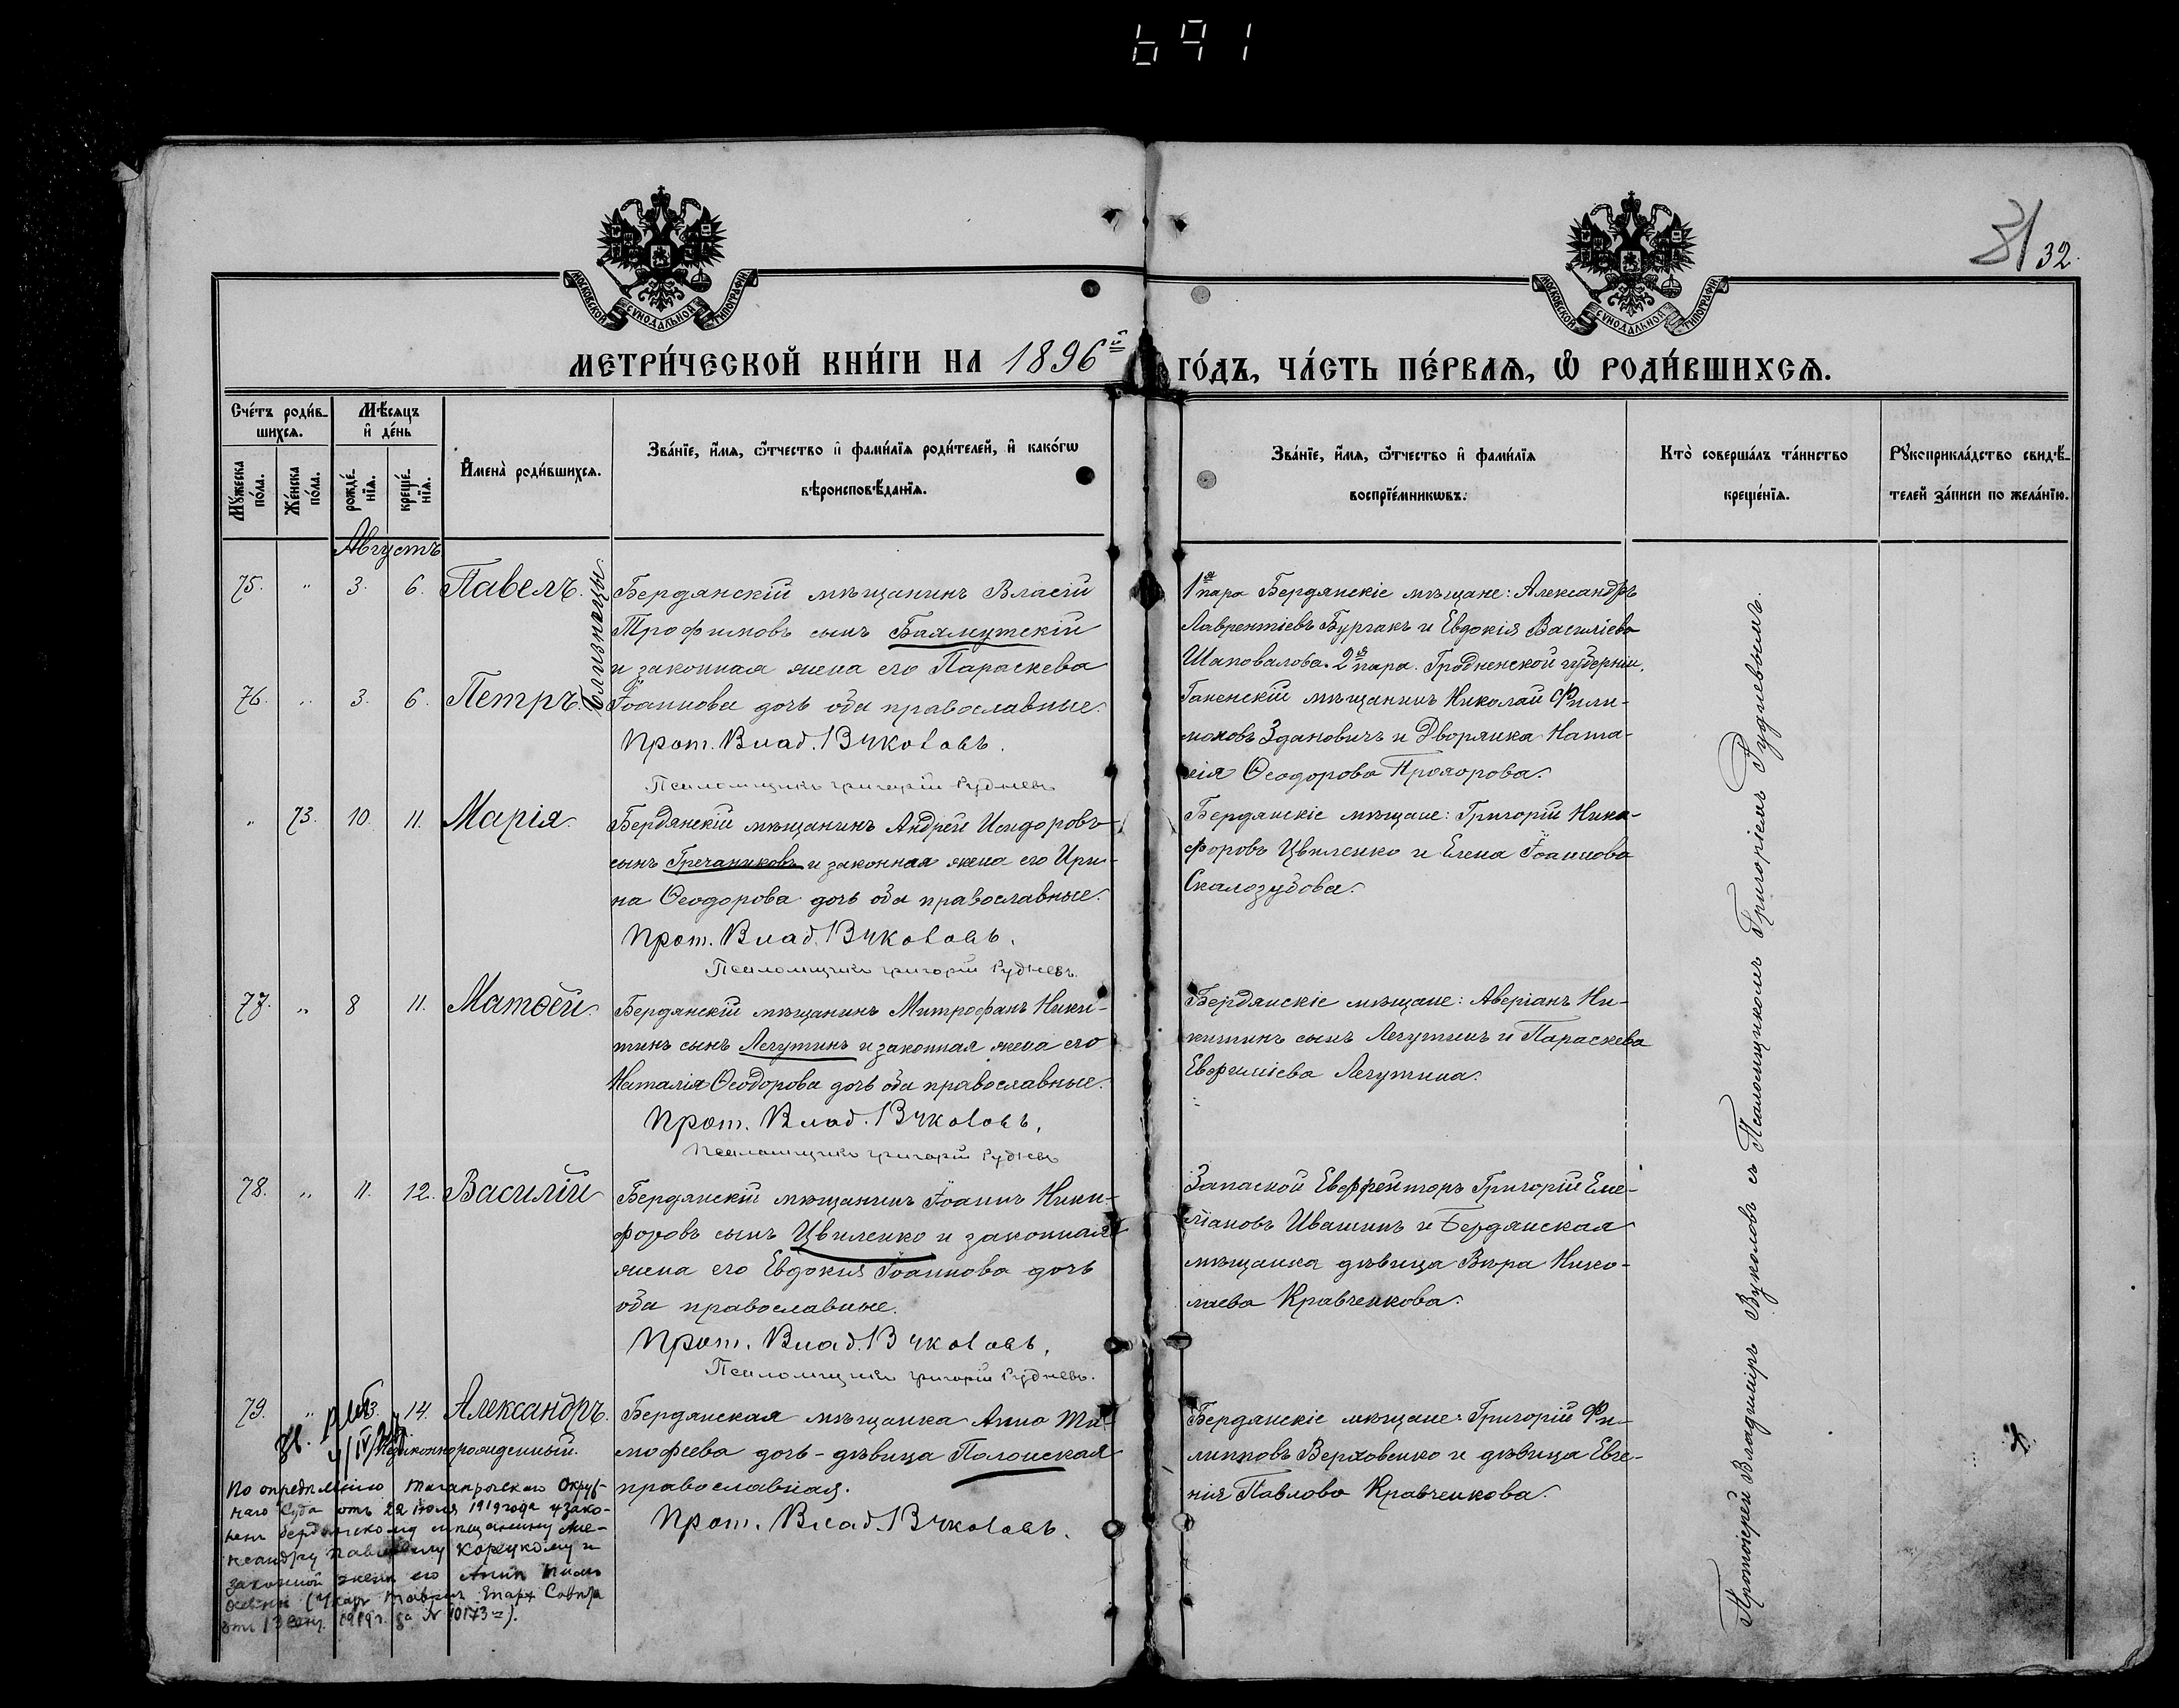 691
31 32.
МОСКОВСКОЙ СУНОДАЛЬНОЙ ТИПОГРАФІИ
МОСКОВСКОЙ СУНОДАЛЬНОЙ ТИПОГРАФІИ
МЕТРИ́ЧЕСКОЙ КНИ́ГИ НА 1896й ГО́ДЪ, ЧА́СТЬ ПЕ́РВАѦ, Ѡ РОДИ́ВШИХСѦ.
Сче́тъ роди́в-
шихсѧ.
Мѣ́сѧцъ
и҆ де́нь
Мꙋ́жеска по́ла.
Же́нска по́ла.
рожде́нїѧ.
креще́нїѧ.
И҆мена̀ роди́вшихсѧ.
Зва́нїе, и҆́мѧ, ѻ҆́тчество и҆ фами́лїѧ роди́телей, и҆ како́гѡ
вѣроисповѣ́данїѧ.
Зва́нїе, и҆́мѧ, ѻ҆́тчество и҆ фами́лїѧ
воспрїе́мникѡвъ.
Кто̀ соверша́лъ та́инство
креще́нїѧ.
Рꙋкоприкла́дство свидѣ́-
телей за́писи по жела́нїю.
Августъ
75. " 3. 6. Павелъ.
76. " 3. 6. Петръ.
близнецы.
Бердянскій мѣщанинъ Власій
Трофимовъ сынъ Бахмутскій
и законная жена его Параскева
Іоаннова дочь оба православные.
Прот. Влад. Вуколовъ.
Псаломщикъ Григорій Рудневъ
1я пара Бердянскіе мѣщане: Александръ
Лаврентіевъ Бургакъ и Евдокія Василіева
Шаповалова. 2я пара. Гродненской губерніи,
мѣщанинъ Николай Фили-
моновъ Здановичъ и Дворянка Ната-
лія Ѳеодорова Прохорова.
" 73. 10. 11. Марія.
Бердянскій мѣщанинъ Андрей Исидоровъ
сынъ Гречаниковъ и законная жена его Ири-
на Ѳеодорова дочь оба православные.
Прот. Влад. Вуколовъ.
Псаломщикъ Григорій Рудневъ.
Бердянскіе мѣщане: Григорій Ники-
форовъ Цвиленко и Елена Іоаннова
Скалозубова.
77. " 8 11. Матѳей.
Бердянскій мѣщанинъ Митрофанъ Ники-
тинъ сынъ Легутинъ и законная жена его
Наталія Ѳеодорова дочь оба православные.
Прот. Влад. Вуколовъ.
Псаломщикъ Григорій Рудневъ
Бердянскіе мѣщане: Аверіанъ Ни-
китинъ сынъ Легутинъ и Параскева
Евфиміева Легутина.
78. " 11. 12. Василій
Бердянскій мѣщанинъ Іоаннъ Ники-
форовъ сынъ Цвиленко и законная
жена его Евдокія Іоаннова дочь
оба православные.
Прот. Влад. Вуколовъ.
Псаломщикъ Григорій Рудневъ.
Запасной Ефрейторъ Григорій Еме-
ліановъ Ивашинъ и Бердянская
мѣщанка дѣвица Вѣра Нико-
лаева Кравченкова.
79. " 13. 14. Александръ.
Незаконнорожденный.
Бердянская мѣщанка Анна Ти-
мофеева дочь-дѣвица Полонская
православная.
Прот. Влад. Вуколовъ.
Бердянскіе мѣщане: Григорій Фи-
липповъ Верховенко и дѣвица Евге-
нія Павлова Кравченкова.
По опредѣленію Таганрогскаго Окруж-
наго Суда отъ 22 іюля 1919 года узако-
ненъ бердянскому мѣщанину Але-
ксандру Павлову Корецкому и
законной женѣ его Аннѣ Тимо-
феевнѣ (Указъ Таврич. Епарх Совѣта
отъ 13 Сент. 1919 г. за № 10173).
Протоіерей Владиміръ Вуколовъ съ Псаломщикомъ Григоріемъ Рудневымъ.